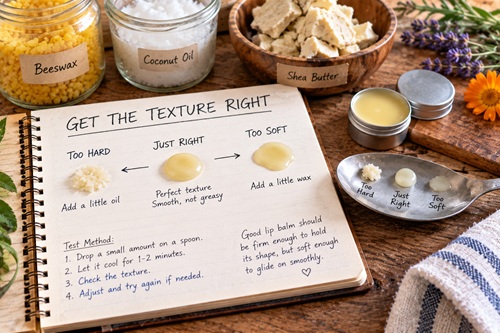 Beeswax
Coconut Oil
Shea Butter
GET THE TEXTURE RIGHT
TOO HARD
JUST RIGHT
TOO SOFT
Add a little oil
Perfect texture
Smooth, not greasy
Add a little wax
Test Method:
1. Drop a small amount on a spoon.
2. Let it cool for 1-2 minutes.
3. Check the texture.
4. Adjust and try again if needed.
Good lip balm should
be firm enough to hold
its shape, but soft enough
to glide on smoothly.
Too
Hard
Just
Right
Too
Soft